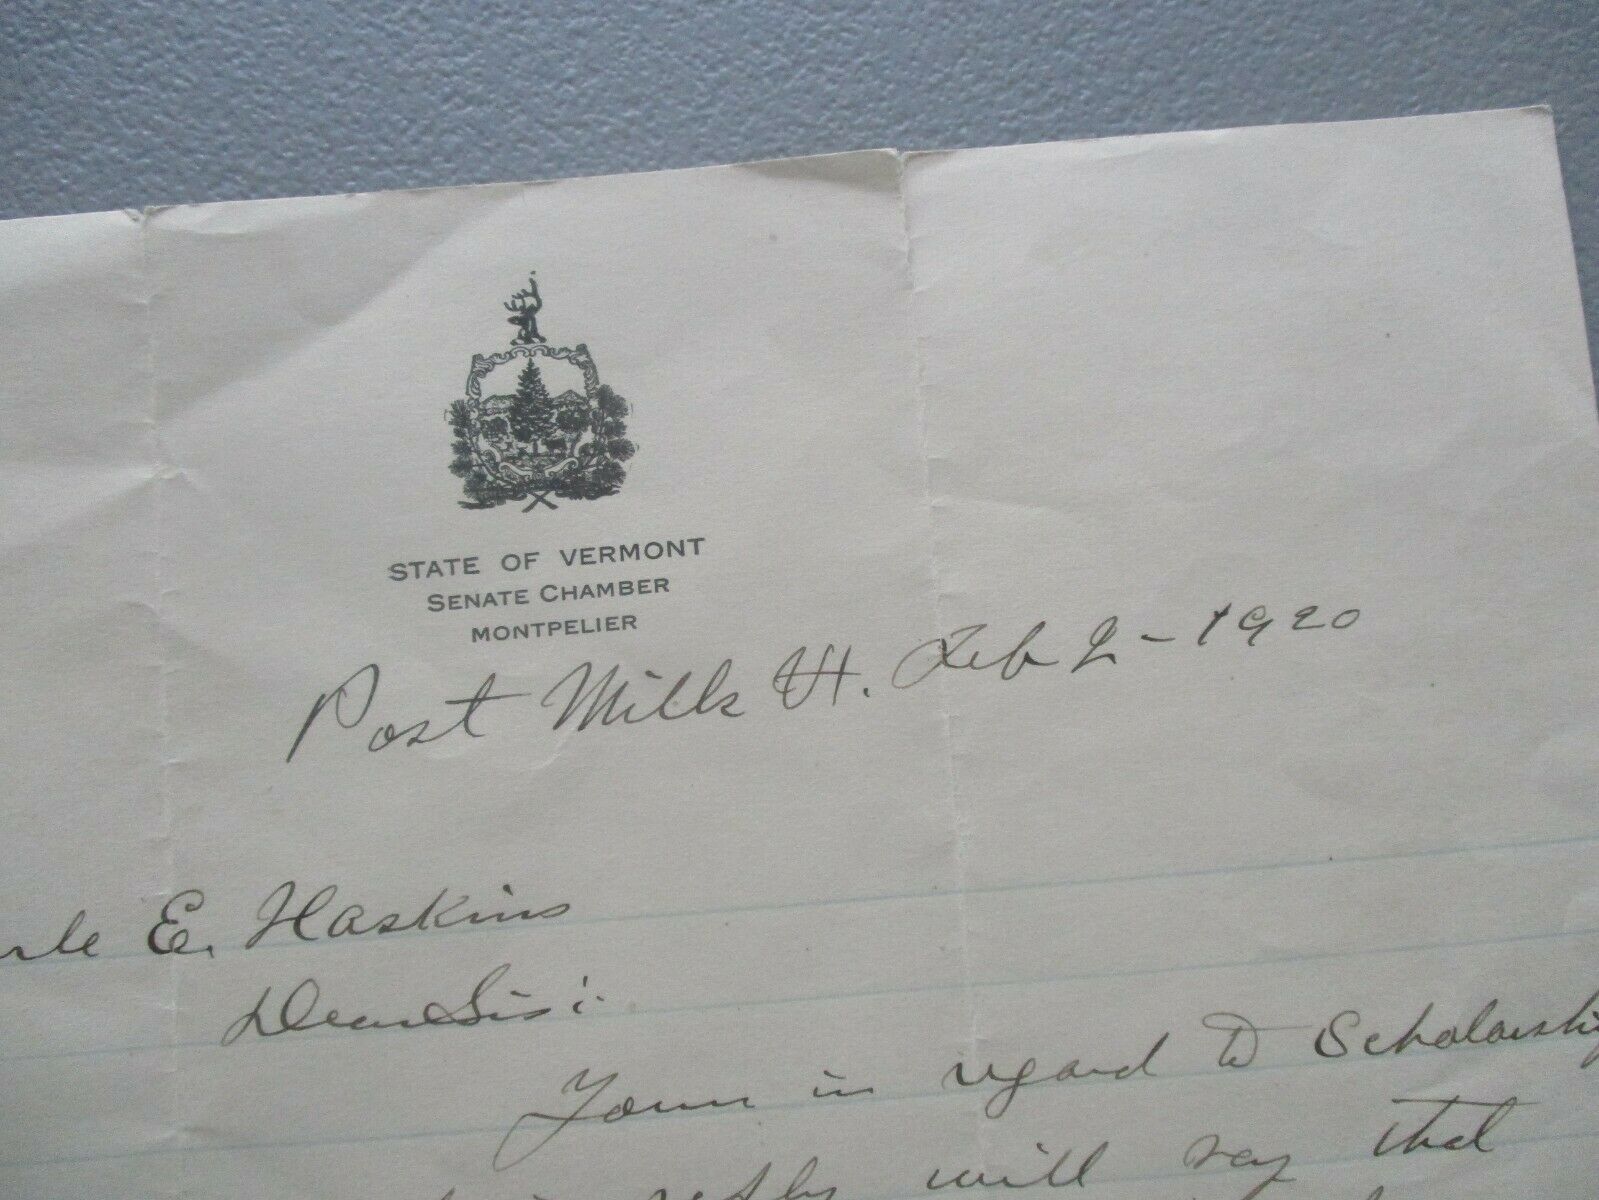 STATE OF VERMONT
SENATE CHAMBER
MONTPELIER
Post Mills Vt. Feb 2-1920
E. Haskins
Dear Sir:
Yours in regard to Scholarship
reply will say that